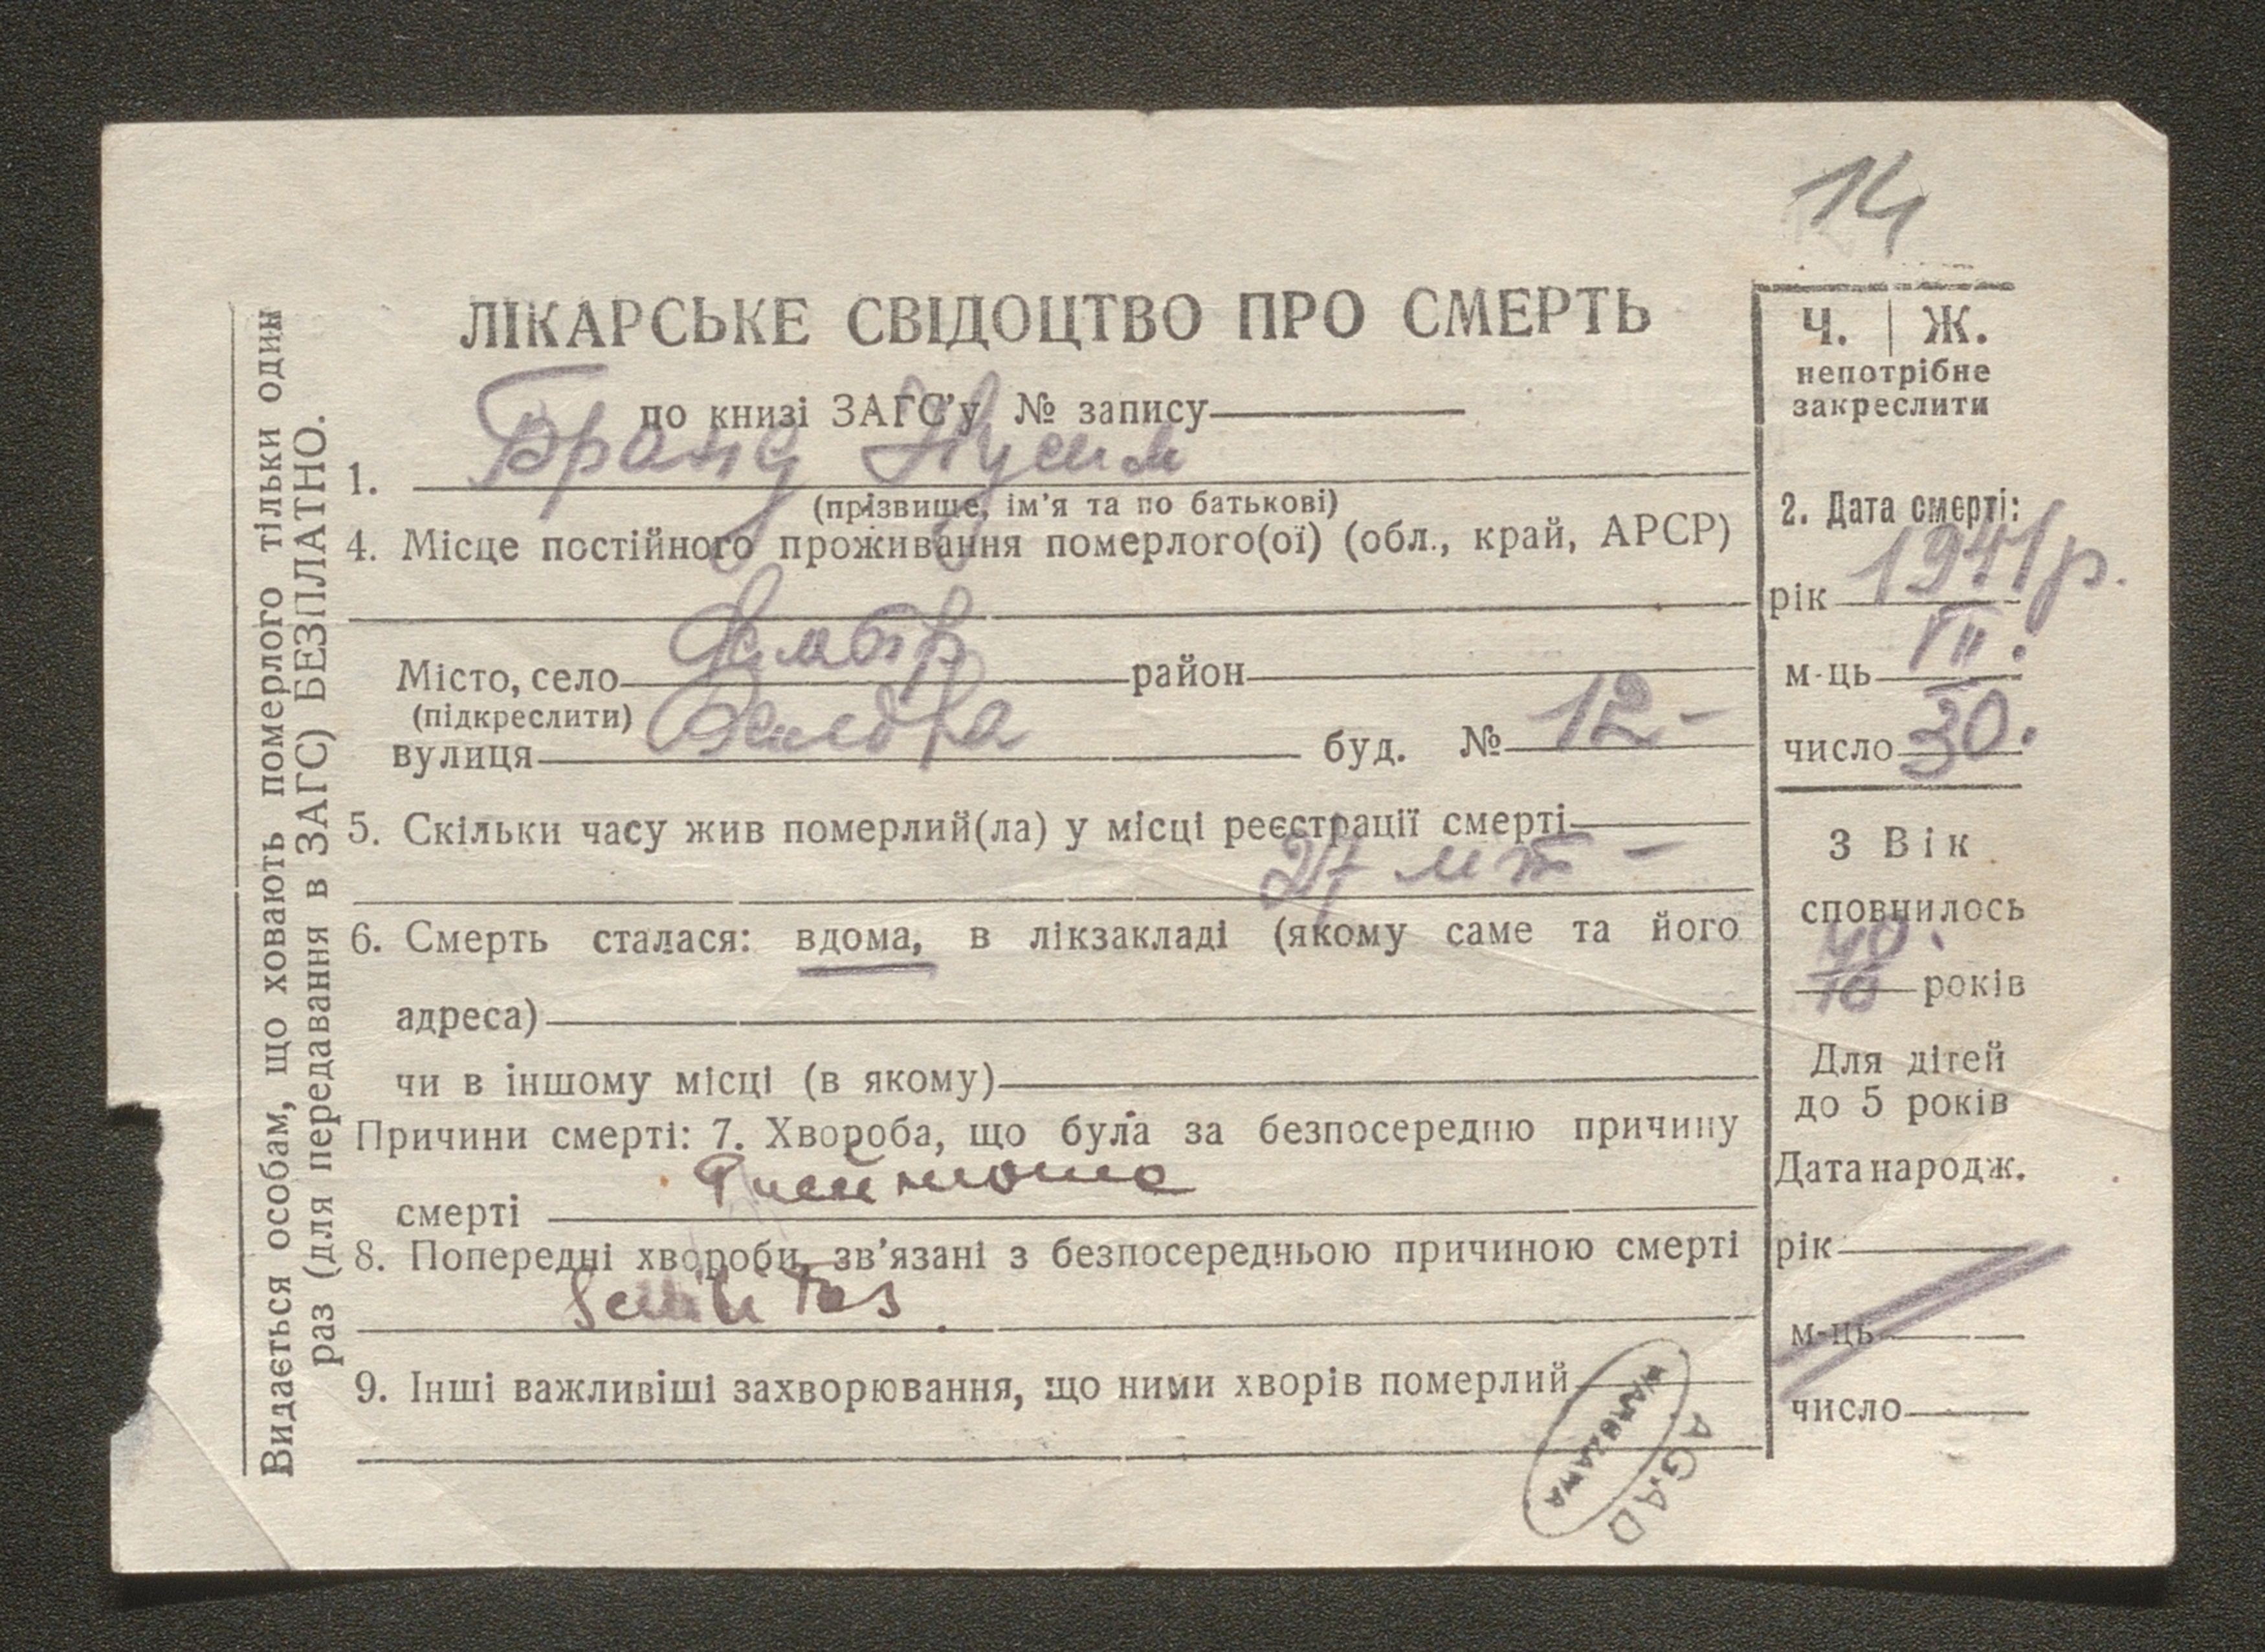 14
ЛІКАРСЬКЕ СВІДОЦТВО ПРО СМЕРТЬ
по книзі ЗАГС'у № запису
1. Бранд Нусим
(прізвище, ім'я та по батькові)
4. Місце постійного проживання померлого(ої) (обл., край, АРСР)
Місто, село район
(підкреслити)
вулиця буд. № 12-
5. Скільки часу жив померлий(ла) у місці реєстрації смерті
27
6. Смерть сталася: вдома, в лікзакладі (якому саме та його
адреса)
чи в іншому місці (в якому)
Причини смерті: 7. Хвороба, що була за безпосередню причину
смерті
8. Попередні хвороби, зв'язані з безпосередньою причиною смерті
Senilitas
9. Інші важливіші захворювання, що ними хворів померлий
Ч. | Ж.
непотрібне
закреслити
2. Дата смерті:
рік 1941 р.
м-ць VII.
число 30.
3 Вік
сповнилось
років
Для дітей
до 5 років
Дата народж.
рік
м-ць
число
Видається особам, що ховають померлого тільки один
раз (для передавання в ЗАГС) БЕЗПЛАТНО.
AGAD
WARSZAWA